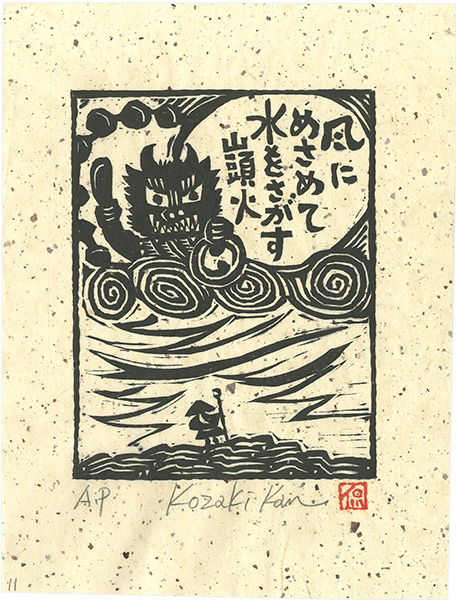 風に
めさめて
水をさがす
山頭火
A.P Kozaki Kan
侃
11